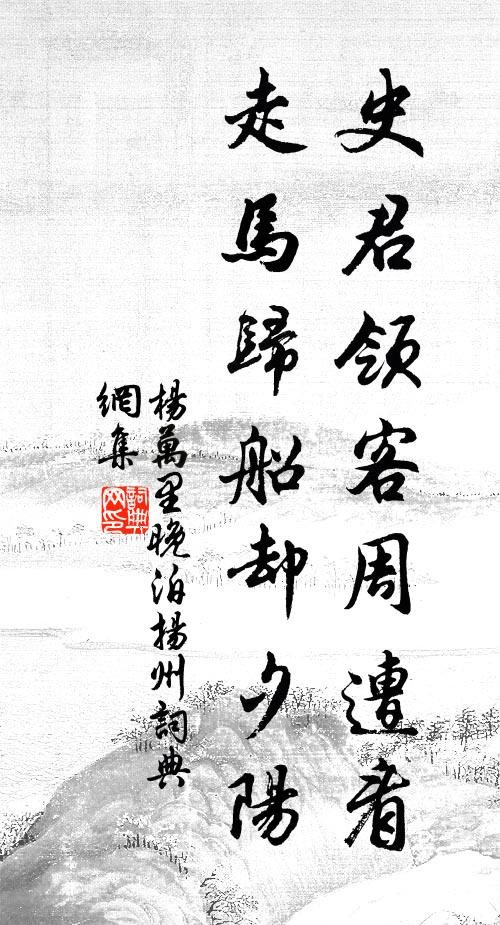 史君領客周遭看
走馬歸船却夕陽
楊萬里晚泊揚州詞典
網集
詞典
网印